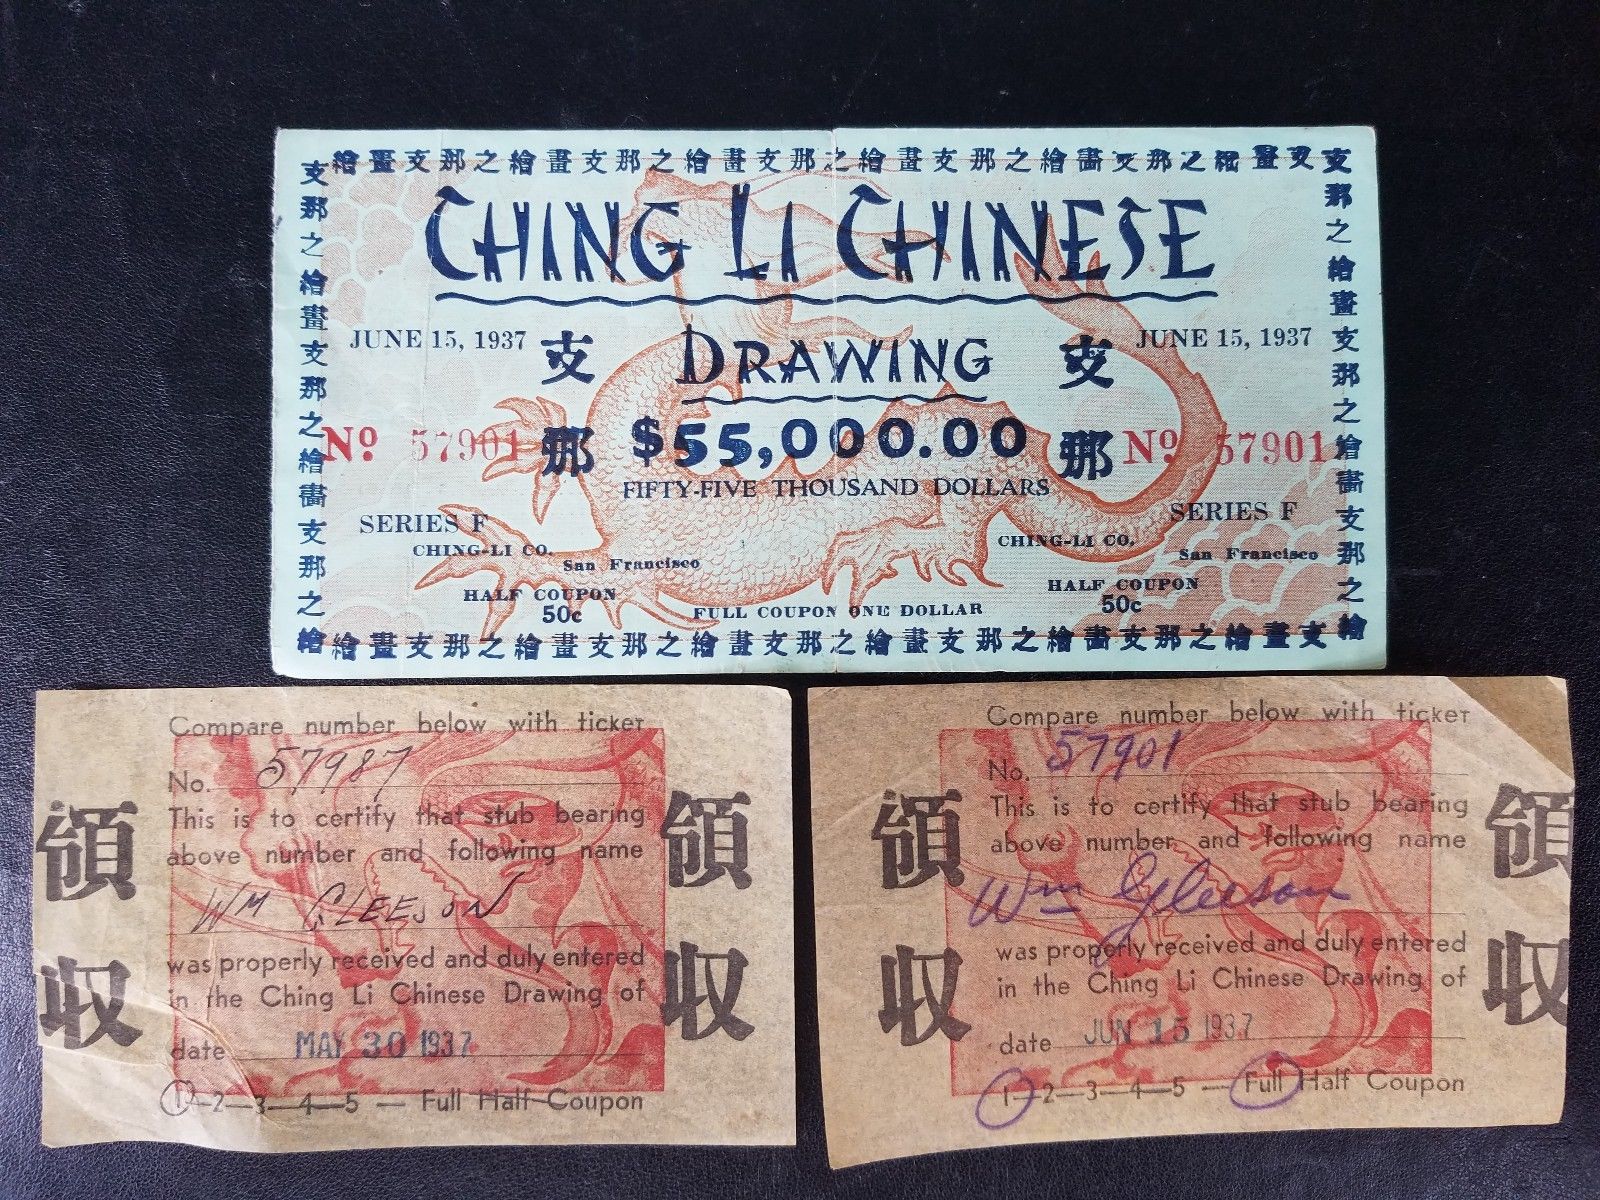 繪畫支那之繪畫支那之繪畫支那之繪畫支那之繪畫支那之繪畫支
支那之繪畫支那之繪畫支那之繪
CHING LI CHINESE
JUNE 15, 1937 支 DRAWING 支 JUNE 15, 1937
Nº 57901 那 $55,000.00 那 Nº 57901
FIFTY-FIVE THOUSAND DOLLARS
SERIES F SERIES F
CHING-LI CO. CHING-LI CO.
San Francisco San Francisco
HALF COUPON HALF COUPON
50c FULL COUPON ONE DOLLAR 50c
支那之繪畫支那之繪畫支那之繪
繪畫支那之繪畫支那之繪畫支那之繪畫支那之繪畫支那之繪畫支
Compare number below with ticket
No. 57987
This is to certify that stub bearing
above number and following name
Wm GLEESON
was properly received and duly entered
in the Ching Li Chinese Drawing of
date MAY 30 1937
1—2—3—4—5 — Full Half Coupon
領收
領收
Compare number below with ticket
No. 57901
This is to certify that stub bearing
above number and following name
Wm Gleeson
was properly received and duly entered
in the Ching Li Chinese Drawing of
date JUN 15 1937
1—2—3—4—5 — Full Half Coupon
領收
領收